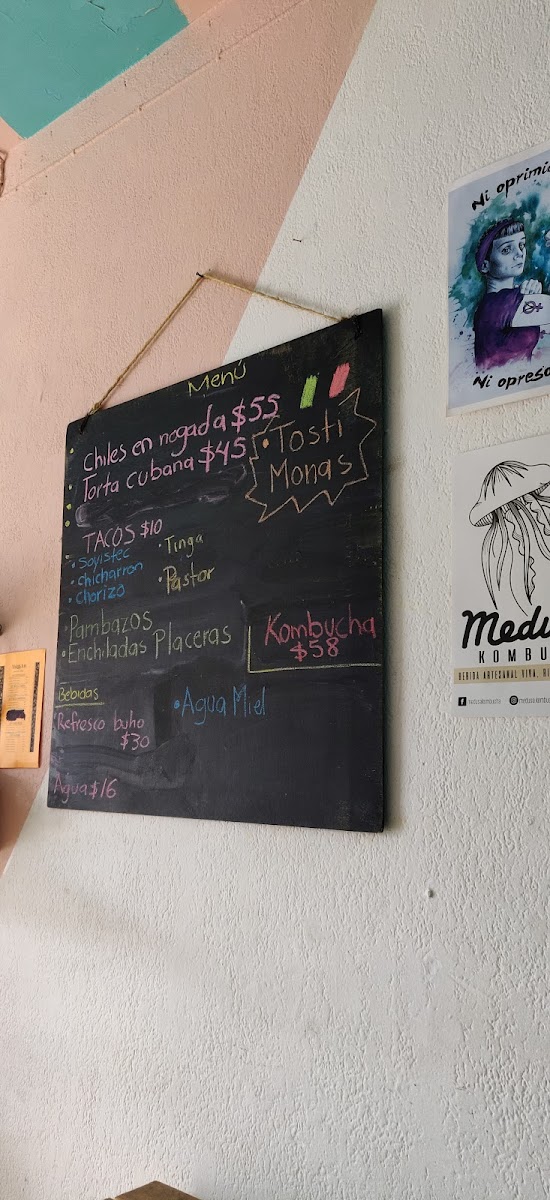 Menú
Chiles en nogada $55
Torta cubana $45
• Tosti
Monas
TACOS $10
• Soyistec
• chicharron
• chorizo
• Tinga
• Pastor
• Pambazos
• Enchiladas Placeras
Kombucha
$58
Bebidas
Refresco buho
$30
• Agua Miel
Agua $16
Ni
Ni
KOMBU
BEBIDA ARTESANAL VIVA,